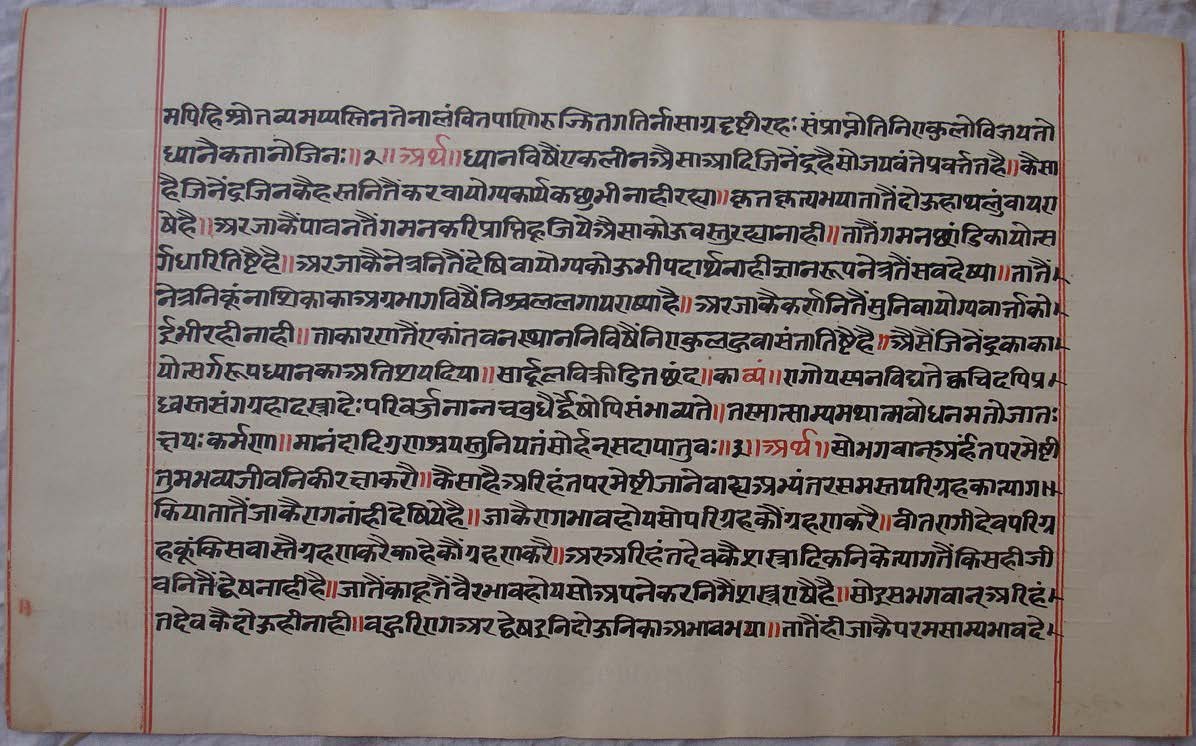 मपिहि श्रोतव्यमप्यस्तिनतेनालंवितपाणिरुज्झितगतिर्नासाग्रदृष्टीरहः संप्राप्नोतिनिराकुलोविजयतो
ध्यानैकतानोजिनः॥२॥अर्थ॥ध्यानविषैंएकलीनअैसाआदिजिनेंद्रहैसोजयवंतेप्रवर्त्ततहै॥कैसा
हैजिनेंद्रजिनकैहस्तनितैंकरवायोग्यकार्यकछुभीनाहीरह्या॥कृतकृत्यभयातातैंदोऊहाथलुंवायरा
षेहै॥अरजाकैंपावनतैंगमनकरिप्राप्तिहूजियेअैसाकोऊवस्तुरह्यानाही॥तातैंगमनछांडिकायोत्स
र्गधारितिष्टैहै॥अरजाकैनेत्रनितैंदेषिवायोग्यकोऊभीपदार्थनाहीज्ञानरूपनेत्रतैंसवदेष्या॥तातैं
नेत्रनिकूंनाशिकाकाअग्रभागविषैंनिश्चललगायराष्याहै॥अरजाकैकर्णनितैंसुनिवायोग्यवार्त्ताको
ईभीरहीनाही॥ताकारणतैंएकांतवनस्थाननिविषैंनिराकुलहुवासंतातिष्टैहै॥अैसैंजिनेंद्रकाका
योत्सर्गरूपध्यानकाअतिशयदिया॥सार्दूलविक्रीडितछंद॥काव्यं॥रागोयस्यनविद्यतेक्वचिदपिप्र
ध्वस्तसंगग्रहादस्त्रादेःपरिवर्जनान्नचवुधैर्द्वेषोपिसंभाव्यते॥तस्मात्साम्यमथात्मवोधनमतोजातः
क्षयःकर्मणा॥मानंदादिगुणाश्रयस्तुनियतंसोर्हन्सदापातुवः॥३॥अर्थ॥सोभगवानअर्हंतपरमेष्टी
तुमभव्यजीवनिकीरक्षाकरौ॥कैसाहैअरिहंतपरमेष्टीजानेवाह्यअभ्यंतरसमस्तपरिग्रहकात्याग
कियातातैंजाकैरागनांहीदेषियेहै॥जाकैरागभावहोयसोपरिग्रहकौंग्रहणकरै॥वीतरागीदेवपरिग्र
हकूंकिसवास्तैग्रहणकरैकाहेकौंग्रहणकरै॥अरुअरिहंतदेवकैशस्त्रादिकनिकेत्यागतैंकिसहीजी
वनितैंद्वेषनाहीहै॥जातैंकाहूतैंवैरभावहोयसोअपनेकरनिमैंशस्त्रराषैहै॥सोइसभगवानअरिहं
तदेवकैदोऊहीनाही॥वहुरिरागअरद्वेषइनिदोऊनिकाअभावभया॥तातैंहीजाकैपरमसाम्यभावदे